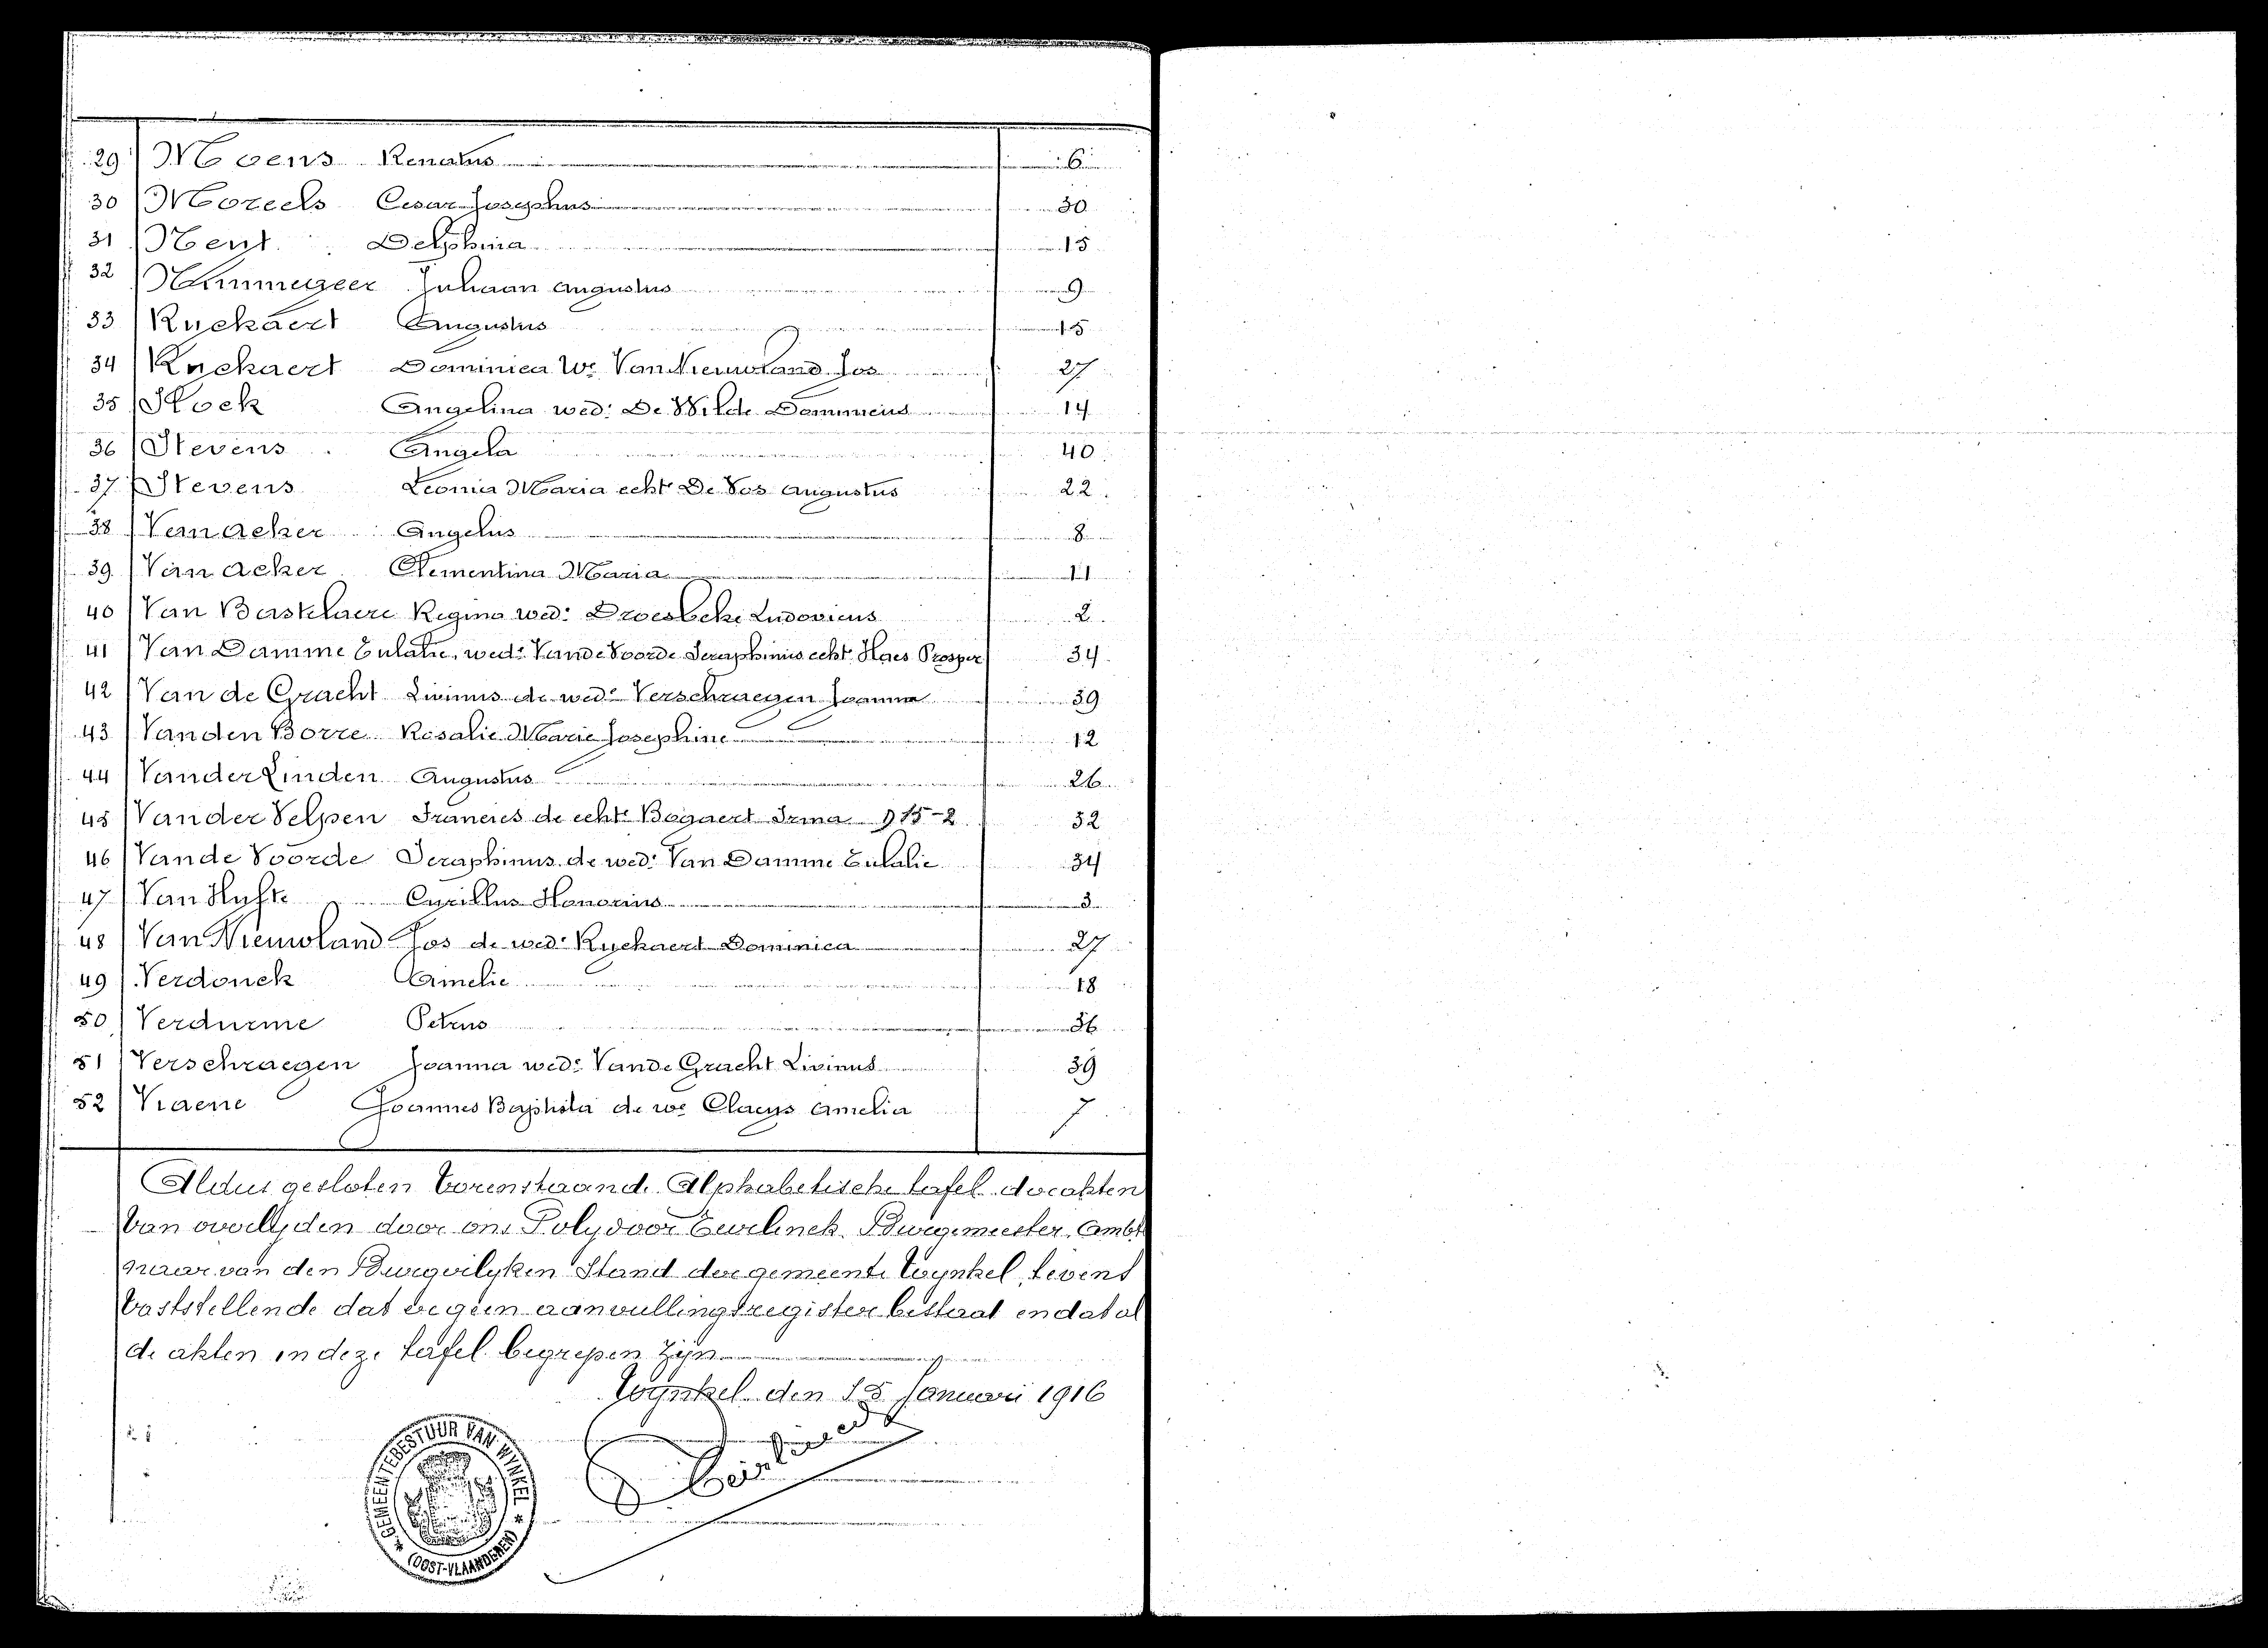 29 Moens Renatus 6
30 Moreels Cesar Josephus 30
31 Neyt Delphina 15
32 Nimmegeer Juliaan Augustus 9
33 Ryckaert Augustus 15
34 Ryckaert Dominica We Van Nieuwland Jos 27
35 Stock Angelina wed: De Wilde Dominicus 14
36 Stevens Angela 40
37 Stevens Leonia Maria echte De Vos Augustus 22
38 Van Acker Angelus 8
39 Van Acker Clementina Maria 11
40 Van Bastelaere Regina wed: Droesbeke Ludovicus 2
41 Van Damme Eulalie, wed: Vande Voorde Seraphinus echte Haes Prosper 34
42 Van de Gracht Livinus de wed: Verschraegen Joanna 39
43 Vanden Borre Rosalie Marie Josephine 12
44 Vander Linden Augustus 26
45 Vander Velpen Francies de echte Bogaert Irma 915-2 32
46 Vande Voorde Seraphinus de wed: Van Damme Eulalie 34
47 Van Hufte Cyrillus Honorius 3
48 Van Nieuwland Jos de wed: Ryckaert Dominica 27
49 Verdonck Amelie 18
50 Verdurme Petrus 36
51 Verschraegen Joanna wed: Vande Gracht Livinus 39
52 Vraene Joannes Baptista de we Claeys Amelia 7
Aldus gesloten Vorenstaande Alphabetische tafel der akten
Van overlijden door ons Polydoor Burgemeester, Ambt
naar van den Burgerlyken Stand der gemeente Wynkel, tevens
Vaststellende dat er geen aanvullingsregister bestaat en dat al
de akten in deze tafel begrepen zijn
Wynkel den 15 Januari 1916
GEMEENTEBESTUUR VAN WYNKEL
(OOST-VLAANDEREN)